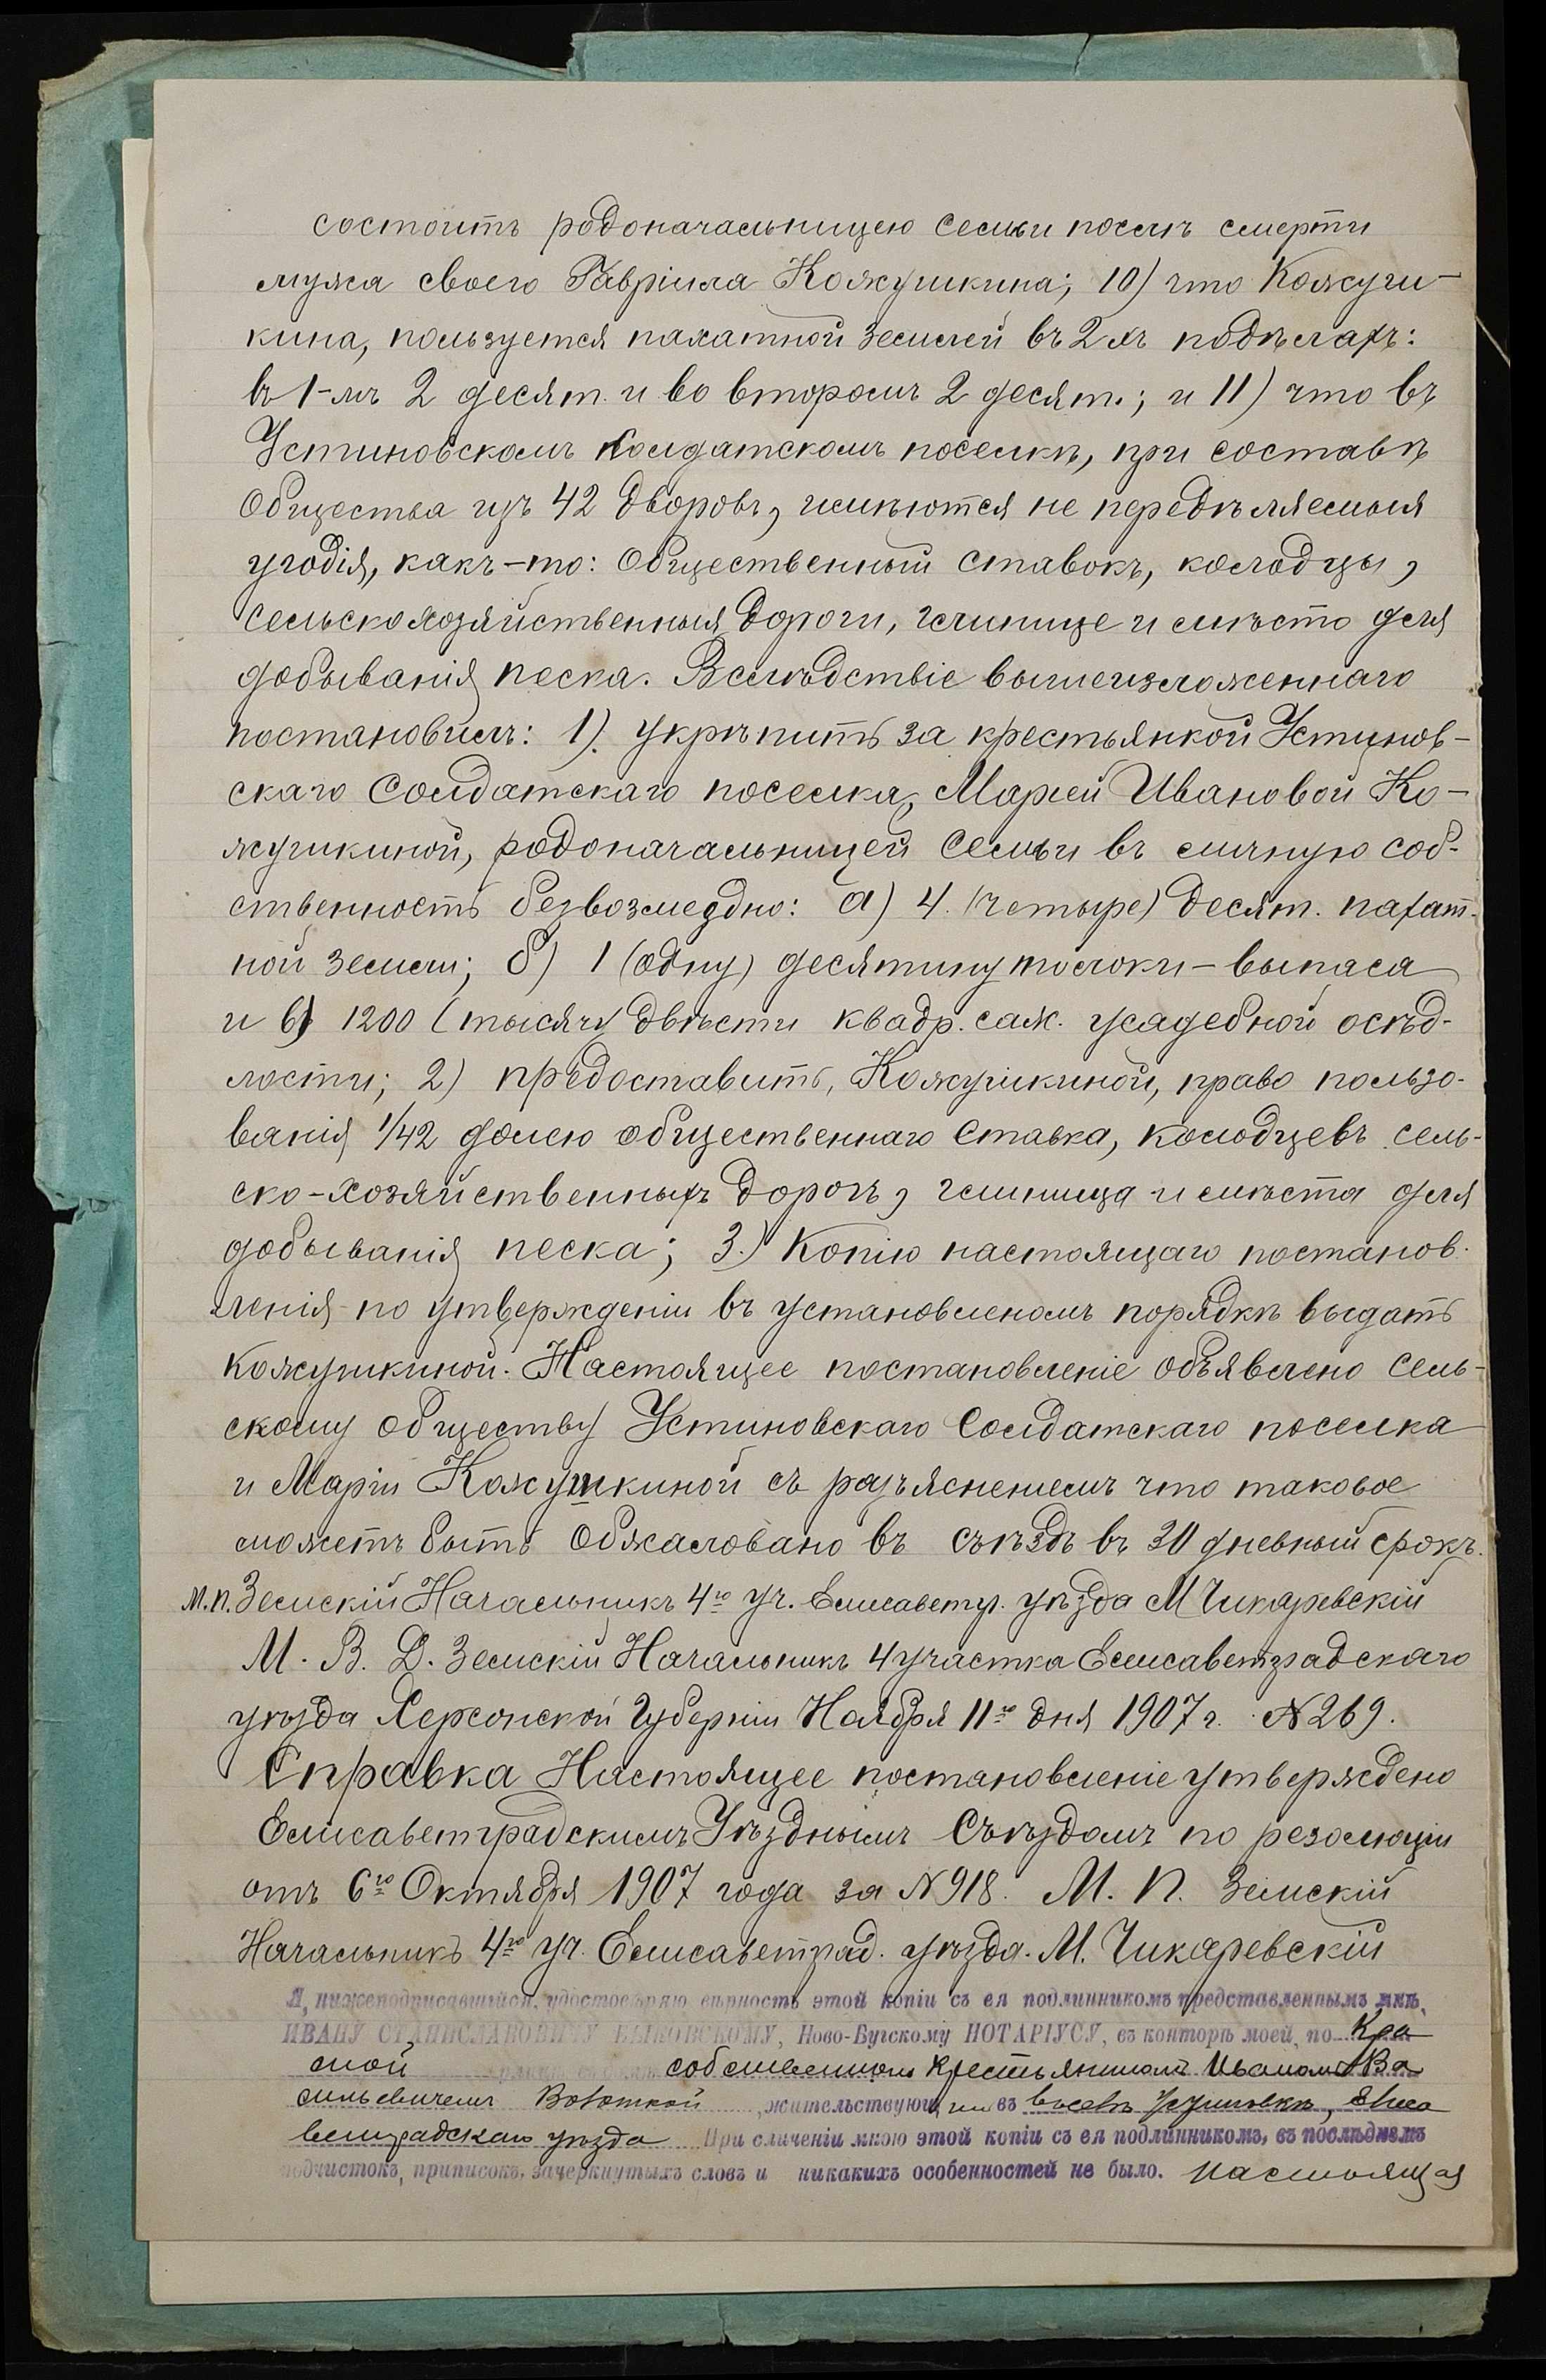 состоитъ родоначальницею семьи послѣ смерти
мужа своего Гавріила Кожушкина; 10) что Кожуш-
кина, пользуется пахатной землей въ 2хъ подѣлахъ:
въ 1-мъ 2 десят. и во второмъ 2 десят.; и 11) что въ
Устиновскомъ Солдатскомъ поселкѣ, при составѣ
Общества изъ 42 дворовъ, имѣются не передѣляемыя
угодія, какъ-то: Общественный ставокъ, колодцы,
сельскохозяйственныя дороги, глинище и мѣсто для
добыванія песка. Вслѣдствіе вышеизложеннаго
постановилъ: 1). укрѣпить за крестьянкой Устинов-
скаго Солдатскаго поселка, Маріей Ивановой Ко-
жушкиной, родоначальницей семьи въ личную соб-
ственность безвозмездно: а) 4. (четыре) десят. пахат-
ной земли; б) 1 (одну) десятину толоки-выпаса
и в) 1200 (тысячу двѣсти квадр. саж. усадебной осѣд-
лости; 2) предоставить, Кожушкиной, право пользо-
ванія 1/42 долею общественнаго ставка, колодцевъ сель-
ско-хозяйственныхъ дорогъ, глинища и мѣста для
добыванія песка; 3.) Копію настоящаго постанов-
ленія по утвержденіи въ установленомъ порядкѣ выдать
Кожушкиной. Настоящее постановленіе объявлено сель-
скому обществу Устиновскаго Солдатскаго поселка
и Маріи Кожушкиной съ разъясненіемъ что таковое
можетъ быть обжаловано въ съѣздъ въ 30 дневный срокъ.
М.П. Земскій Начальникъ 4го уч. Елисаветгр. уѣзда М Чикаревскій
М. В. Д. Земскій Начальникъ 4 участка Елисаветградскаго
уѣзда Херсонской Губерніи Ноября 11го дня 1907 г. N 269.
Справка Настоящее постановленіе утверждено
Елисаветградскимъ Уѣзднымъ Съѣздомъ по резолюціи
отъ 6го Октября 1907 года за N 918. М. П. Земскій
Начальникъ 4го уч. Елисаветград. уѣзда. М. Чикаревскій
Я, нижеподписавшійся, удостовѣряю вѣрность этой копіи съ ея подлинникомъ представленнымъ мнѣ,
ИВАНУ СТАНИСЛАВОВИЧУ БЫКОВСКОМУ, Ново-Бугскому НОТАРІУСУ, въ конторѣ моей, по Кра
сной собственномъ крестьяниномъ Иваномъ Ва
сильевичемъ жительствующимъ въ Елиса
ветградскаго уѣзда При сличеніи мною этой копіи съ ея подлинникомъ, въ послѣднемъ
подчистокъ, приписокъ, зачеркнутыхъ словъ и никакихъ особенностей не было. Настоящая